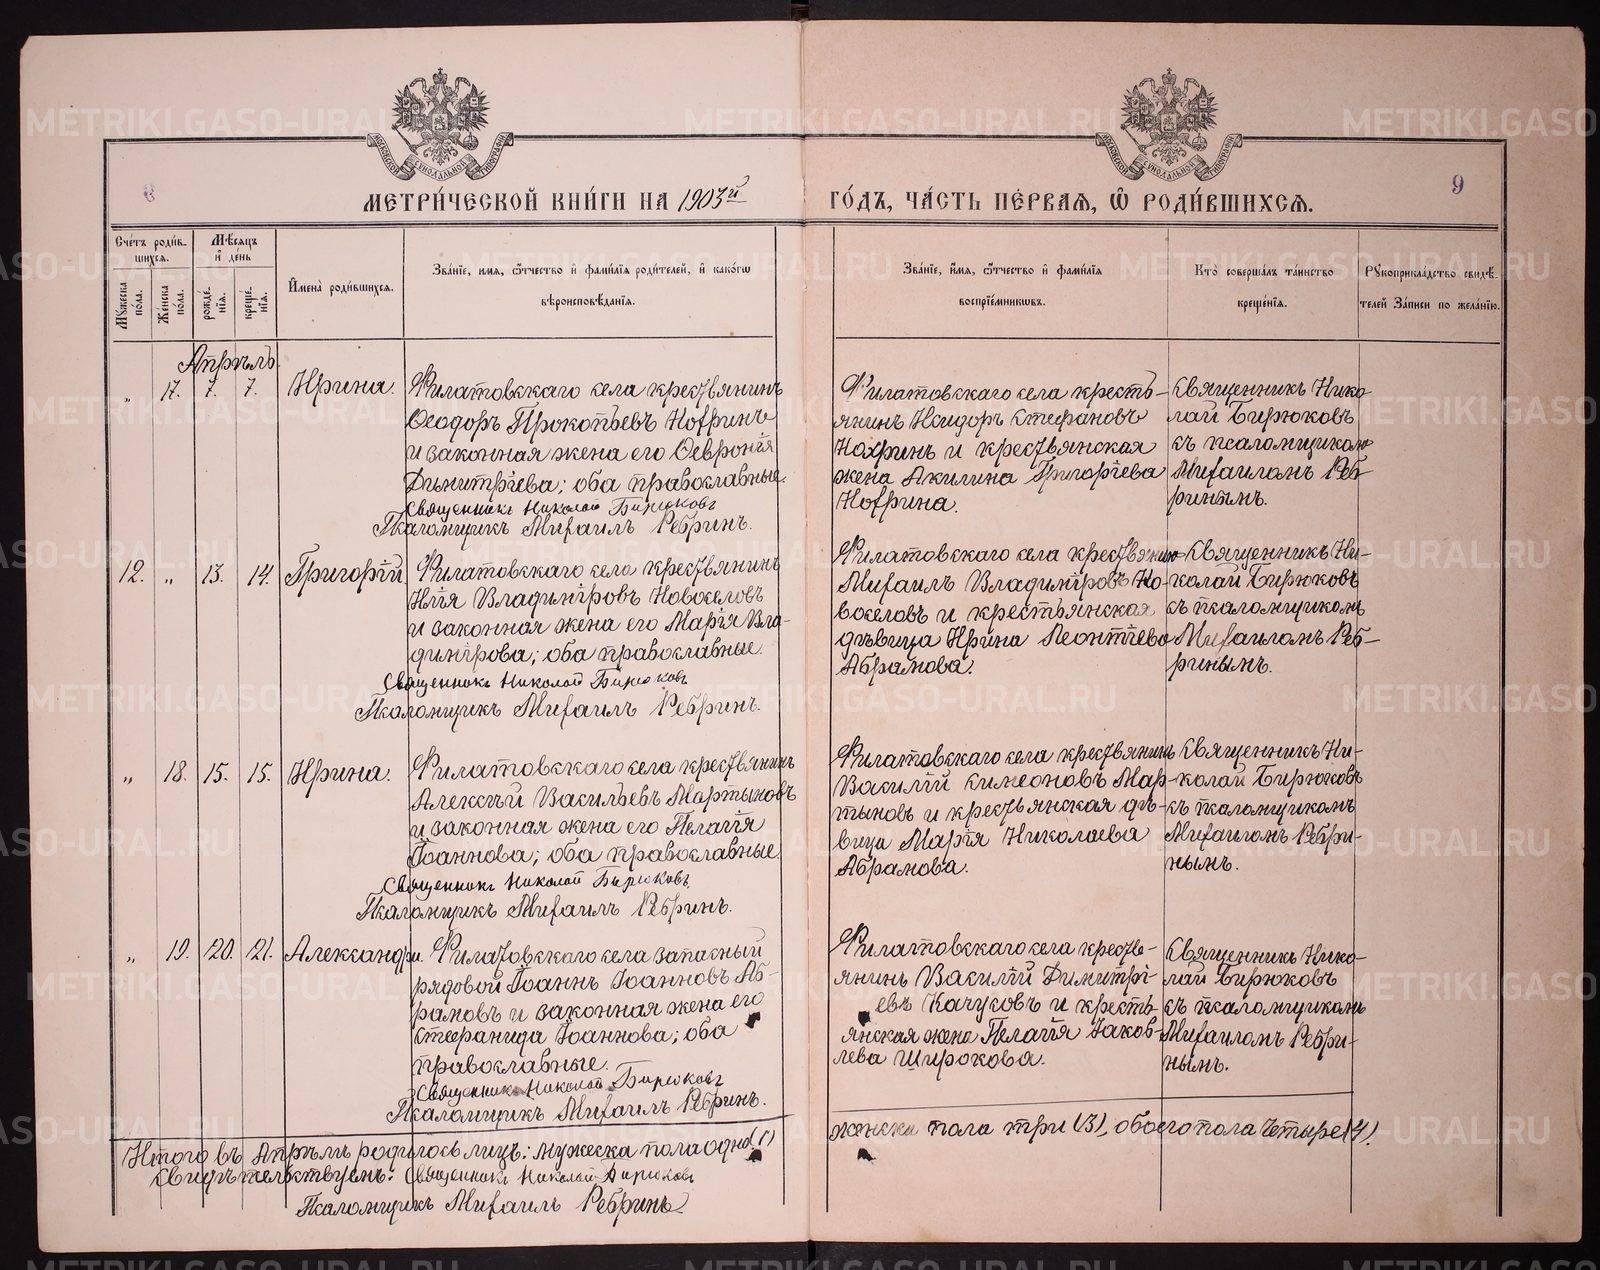 МЕТРИ́ЧЕСКОЙ КНИ́ГИ НА 1903й ГО́ДЪ, ЧА́СТЬ ПЕ́РВАЯ, Ѿ РОДИ́ВШИХСЯ.
9
Сче́тъ роди́в-
шихся.
Мꙋ́жеска пола.
Же́нска пола.
Мѣ́сяцъ
и де́нь
рожде́-
нїя.
креще́-
нїя.
Имена̀ роди́вшихся.
Зва́нїе, имя, ѻ҆́тчество и҆ фами́лїя роди́телей, и҆ како́гѡ
вѣроисповѣ́данїя.
Зва́нїе, и҆́мя, ѻ҆́тчество и҆ фами́лїя
воспрїе́мниковъ.
Кто̀ соверша́лъ та́инство
креще́нїя.
Рꙋкоприкла́дство свидѣ́-
телей За́писи по жела́нїю.
Апрѣль.
„ 17. 7. 7. Ирина.
Филатовскаго села крестьянинъ
Ѳеодоръ Прокопьевъ Нохринъ
и законная жена его Ѳевронія
Димитріева; оба православные.
Священникъ Николай Бирюковъ
Псаломщикъ Михаилъ Ребринъ.
Филатовскаго села кресть-
янинъ Исидоръ Стефановъ
Нохринъ и крестьянская
жена Акилина Григоріева
Нохрина.
Священникъ Нико-
лай Бирюковъ
съ псаломщикомъ
Михаиломъ Реб-
ринымъ.
12. „ 13. 14. Григорій
Филатовскаго села крестьянинъ
Илія Владиміровъ Новоселовъ
и законная жена его Марія Вла-
димірова; оба православные.
Священникъ Николай Бирюковъ
Псаломщикъ Михаилъ Ребринъ.
Филатовскаго села крестьянинъ
Михаилъ Владиміровъ Но-
воселовъ и крестьянская
дѣвица Ирина Леонтіева
Абрамова.
Священникъ Ни-
колай Бирюковъ
съ псаломщикомъ
Михаиломъ Реб-
ринымъ.
„ 18. 15. 15. Ирина.
Филатовскаго села крестьянинъ
Алексѣй Васильевъ Мартыновъ
и законная жена его Пелагія
Іоаннова; оба православные.
Священникъ Николай Бирюковъ
Псаломщикъ Михаилъ Ребринъ.
Филатовскаго села крестьянинъ
Василій Симеоновъ Мар-
тыновъ и крестьянская дѣ-
вица Марія Николаева
Абрамова.
Священникъ Ни-
колай Бирюковъ
съ псаломщикомъ
Михаиломъ Ребри-
нымъ.
„ 19. 20. 21. Александра.
Филатовскаго села запасный
рядовой Іоаннъ Іоанновъ Аб-
рамовъ и законная жена его
Стефанида Іоаннова; оба
православные.
Священникъ Николай Бирюковъ
Псаломщикъ Михаилъ Ребринъ.
Филатовскаго села кресть-
янинъ Василій Димитрі-
евъ Качусовъ и кресть-
янская жена Пелагія Іаков-
лева Широкова.
Священникъ Нико-
лай Бирюковъ
съ псаломщикомъ
Михаиломъ Ребри-
нымъ.
Итого въ Апрѣлѣ родилось лицъ: мужеска пола одно (1) женска пола три (3), обоего пола четыре (4).
Свидѣтельствуемъ: Священникъ Николай Бирюковъ
Псаломщикъ Михаилъ Ребринъ
METRIKI.GASO-URAL.RU